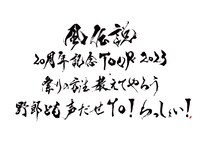 風伝説
20周年記念TOUR 2023
祭りの前生教えてやろう
野郎ども声だせYO!らっしょい!